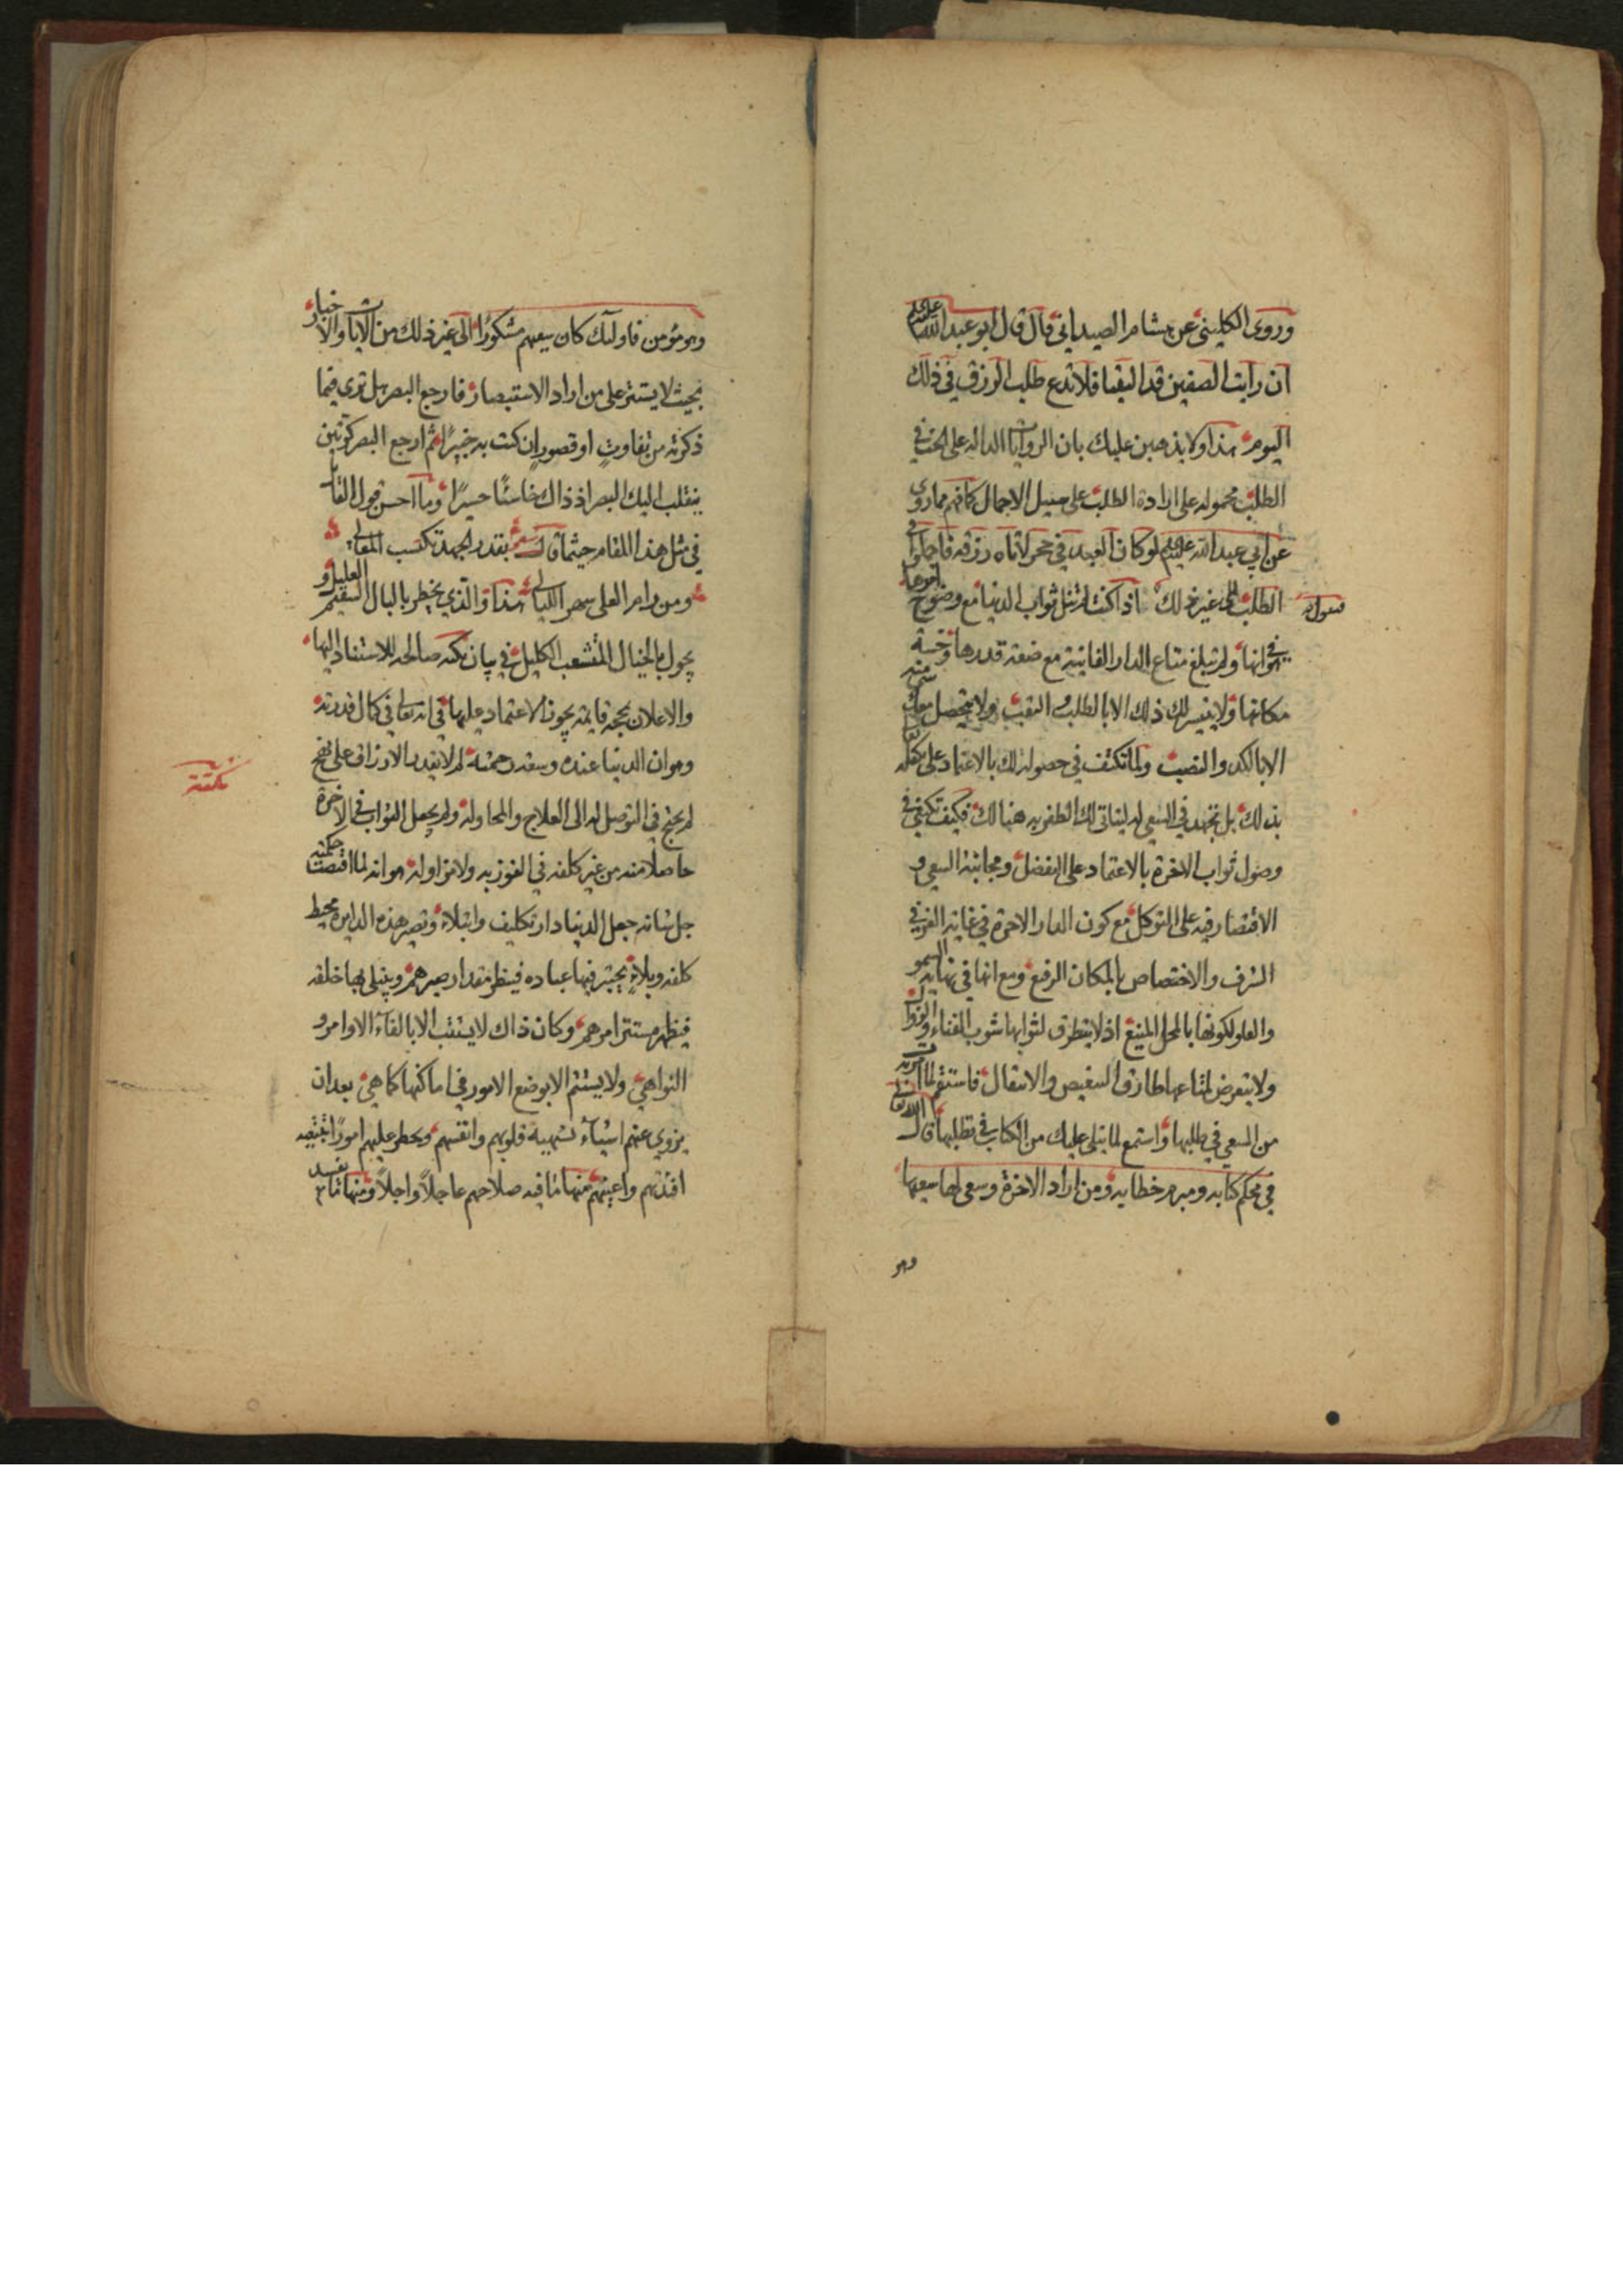 وروى الكليني عن هشام الصيداني قال قال ابو عبد الله عليه السلم
ان رايت الصفين قد التقيا فلا تدع طلب الرزق في ذلك
اليوم هذا ولا يذهبن عليك بان الروايات الداله على الحث في
الطلب محموله على ارادة الطلب على سبيل الاجمال كما فهم مما روى
عن ابي عبد الله عليه السلم لو كان العبد في حجر لاتاه رزقه فاجملوا في
الطلب الى غير ذلك اذا كنت لم تنل ثواب الدنيا مع وضوح امرها
في هوانها ولم تبلغ متاع الدار الفانية مع ضعة قدرها وخسة
مكانها ولا يتيسر لك ذلك الا بالطلب والتعب ولا يتحصل معك شئ منه
الا بالكد والنصب ولم تكتف في حصوله لك بالاعتماد على تكفله
بذلك بل تجهد في السعي له ليتاتى لك الظفر به هنالك فكيف تكتفي في
وصول ثواب الاخرة بالاعتماد على التفضل ومجانبة السعي و
الاقتصار فيه على التوكل مع كون الدار الاخرة في غاية العز في
الشرف والاختصاص بالمكان الرفع ومع انها في نهاية السمو
والعلو لكونها بالمحل المنيع اذ لا يتطرق لثوابها شوب الفناء والزوال
ولا يتعرض لمتاعها طارق التنغيص والانتقال فاستقم لما امرت
من السعي في طلبها واستمع لما يتلى عليك من الكتاب في تطلبها قال الله تعالى
في محكم كتابه ومبرم خطابه ومن اراد الاخرة وسعى لها سعيها
وهو
وهو مؤمن فاولئك كان سعيهم مشكورا الى غير ذلك من الايات والاخبار
بحيث لا يستتر على من اراد الاستبصار فارجع البصر هل ترى فيما
ذكرته من تفاوت او قصور ان كنت به خبيرا ثم ارجع البصر كرتين
ينقلب اليك البصر اذ ذاك خاسئا حسيرا وما احسن قول القائل
في مثل هذا المقام حيثما قال شعر بقدر الجهد تكتسب المعالي
ومن رام العلى سهر الليالي هذا والذي يخطر بالبال العليل و السقيم
يجول بالخيال المتشعب الكليل في بيان نكته صالحه للاستناد اليها
والاعلان بحجة قايمة يجوز الاعتماد عليها في انه تعالى في كمال قدرته
وهوان الدنيا عنده وسعة رحمته لم لا يقدر الارزاق على نهج
نكتة
لم يحتج في التوصل له الى العلاج والمحاولة ولم يجعل الثواب في الاخرة
حاصلا منه من غير كلفه في الفوز به ولا مزاولة هو انه لما اقتضت حكمته
جل شانه جعل الدنيا دار تكليف وابتلاء وتصير هذه الداير محيط
كلفه وبلاء يختبر فيها عباده فينظر مقدار صبرهم ويبتلي بها خلقه
فيظهر مستتر امرهم وكان ذاك لا يستتب الا بالقاء الاوامر و
النواهي ولا يستتم الا بوضع الامور في اماكنها كما هي بعد ان
يزوي عنهم اشياء تشتهيه قلوبهم وانفسهم ويحظر عليهم امورا تبتغيه
افئدتهم واعينهم منها ما فيه صلاحهم عاجلا واجلا ومنها ما